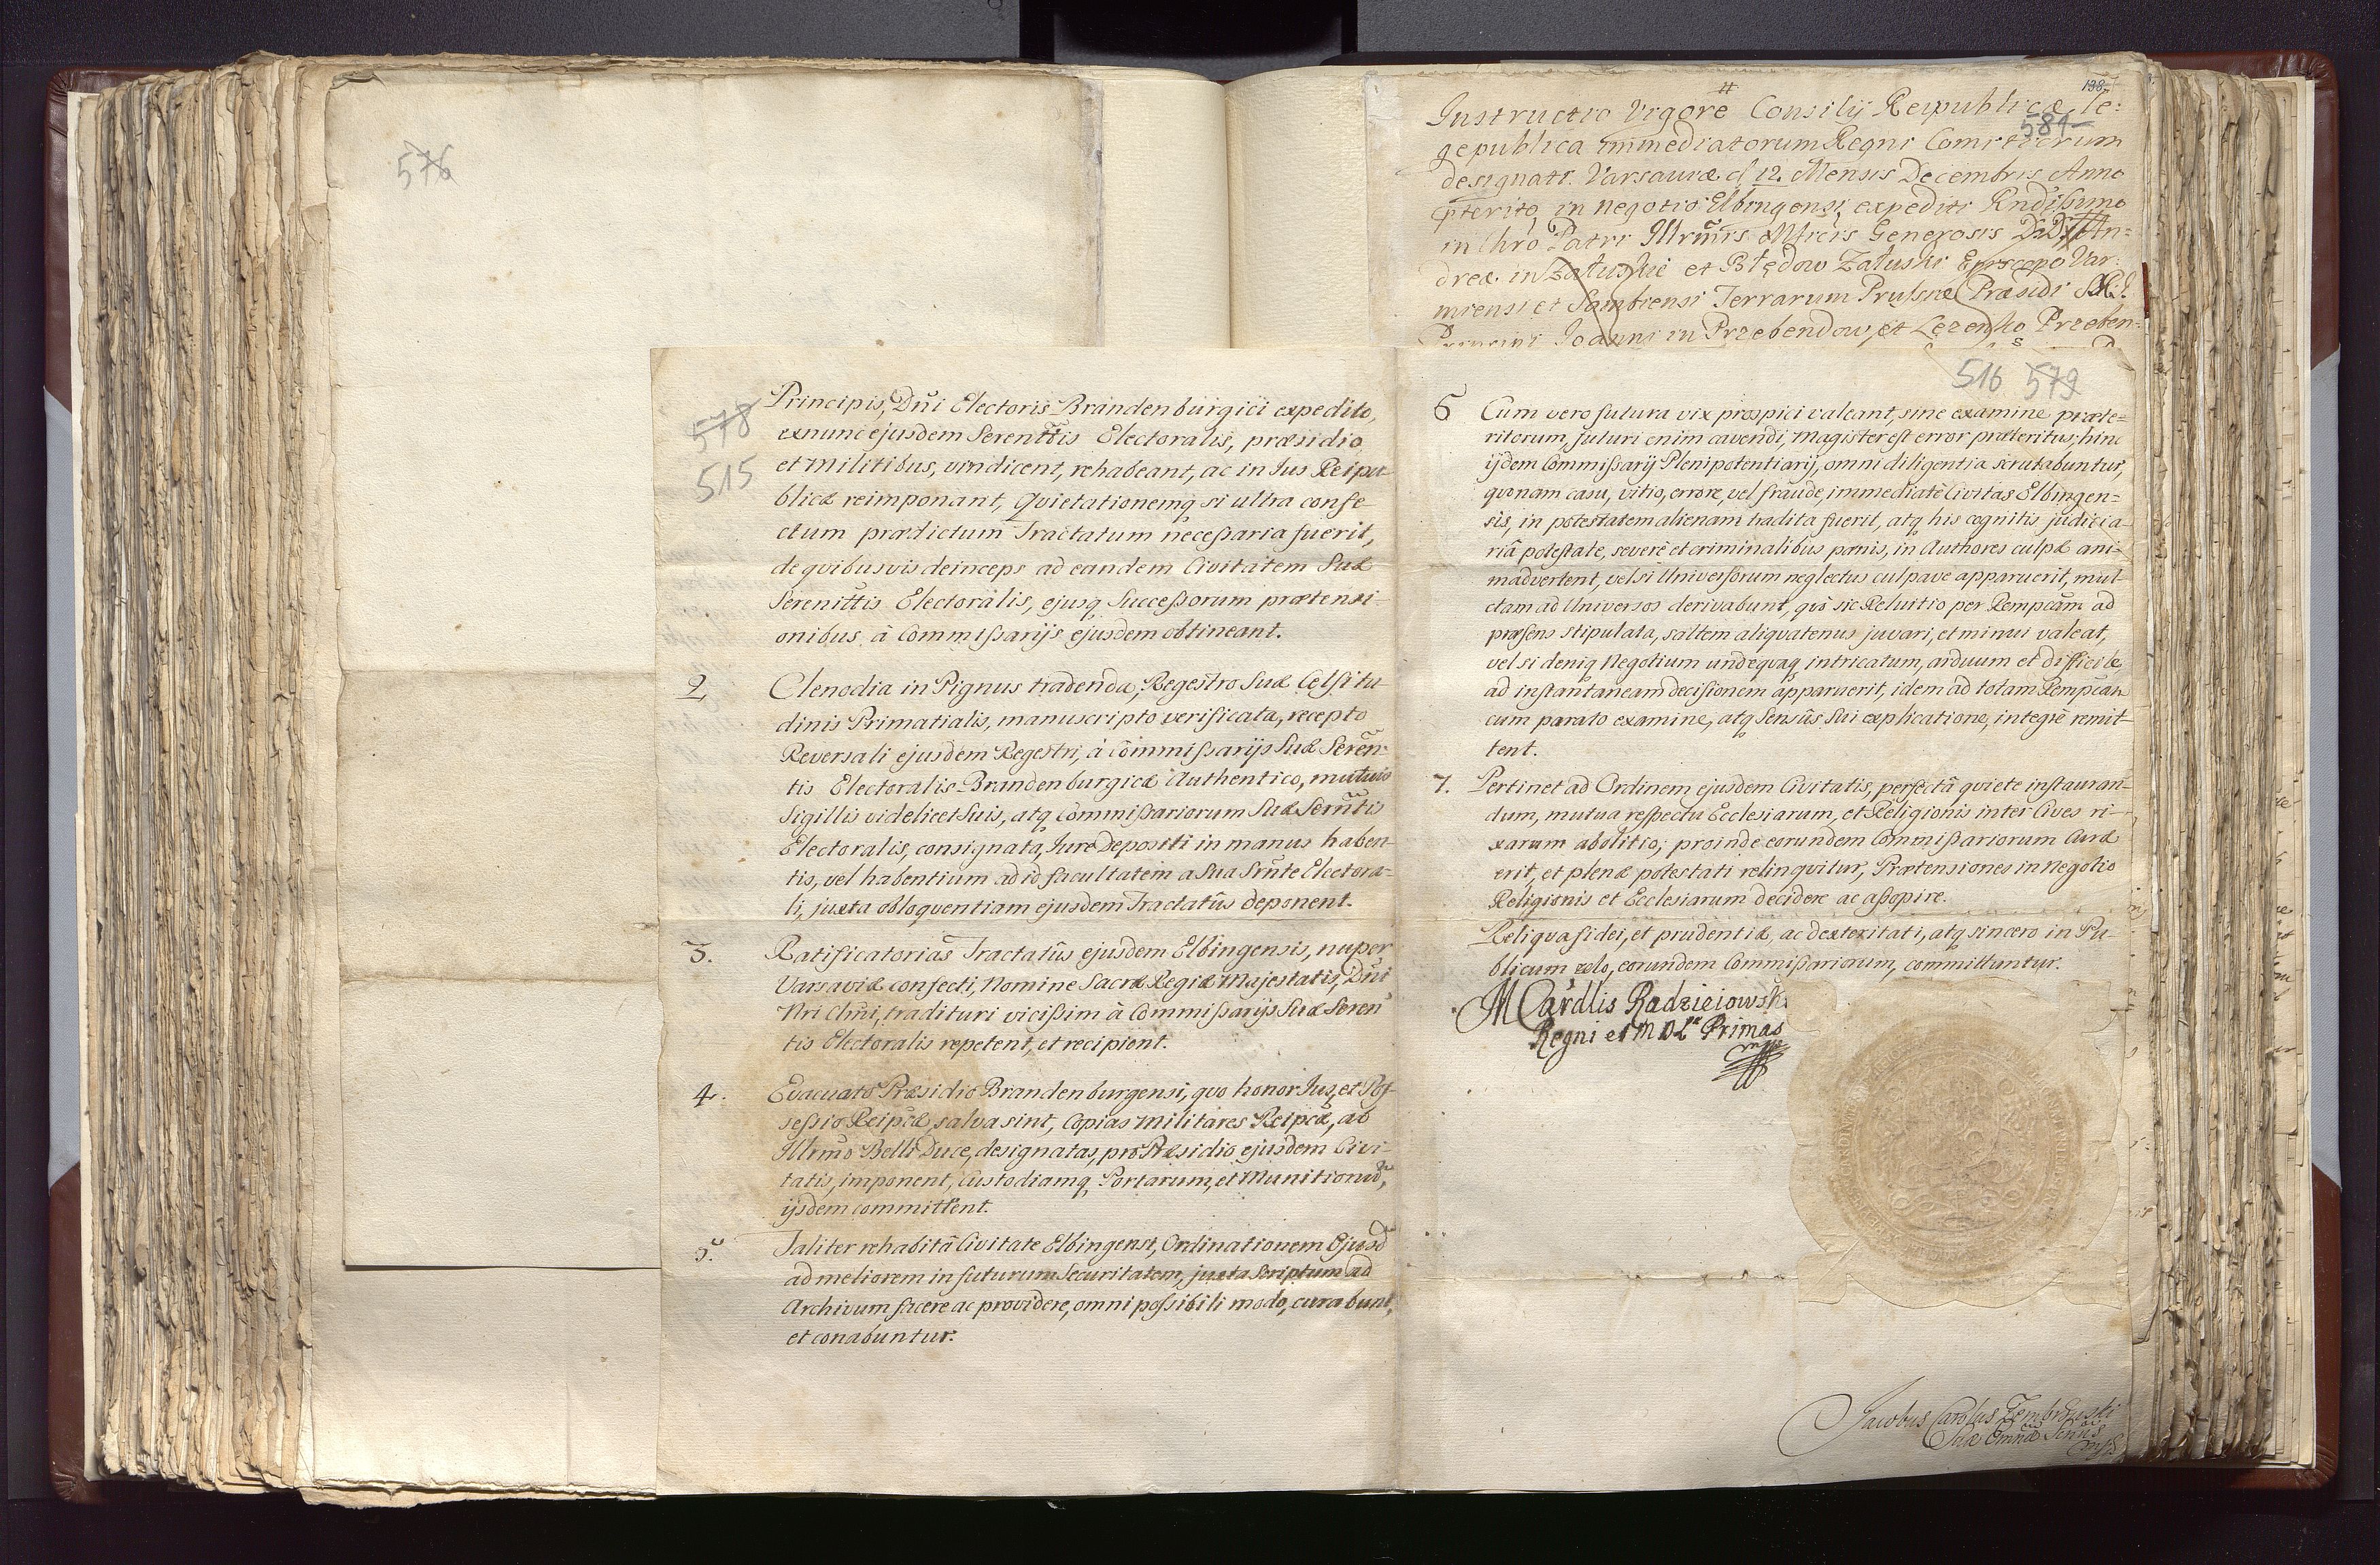 576
138
Instructio Vigore Consilij Reipublicæ le:
581
gepublica immediatorum Regni Comitiorum
designati. Varsaviæ d 12. Mensis Decembris Anno
pterito, in negotio Elbingensi, expediti Rndissimo
in Chro Patri Illrmis Mficis Generosis DD An=
dreæ in Załuskie et Błędow Załuski Episcopo Var:
miensi et Sambiensi Terrarum Prussiæ Præsidi S.R.I.
Principi Joanni in Przebendow, et Lezensko Przeben=
578
515
Principis, Dni Electoris Brandenburgici expedito,
exnunc ejusdem Serenttis Electoralis, præsidio
et Militibus, vindicent, rehabeant, ac in Jus Reipu
blicæ reimponant, Qvietationemq si ultra confe
ctum prædictum Tractatum necessaria fuerit,
de qvibusvis deinceps ad eandem Civitatem Suæ
Serenittis Electoralis, ejusq Successorum prætensi-
onibus à Commissarijs ejusdem obtineant.
2 Clenodia in Pignus tradenda, Regestro Suæ Celsitu
dinis Primatialis, manuscripto verificata, recepto
Reversali ejusdem Regestri, à Commissarijs Suæ Seren:
tis Electoralis Brandenburgicæ Authentico, mutuis
Sigillis videlicet Suis, atq Commissariorum Suæ Serntis
Electoralis, consignata, Jure Depositi in manus haben
tis, vel habentium ad id facultatem a Sua Srnte Electora=
li, juxta obloqventiam ejusdem Tractatûs deponent.
3. Ratificatorias Tractatûs ejusdem Elbingensis, nuper
Varsaviæ confecti, Nomine Sacræ Regiæ Majestatis, Dni
Nri Clmi, tradituri vicissim à Commissarijs Suæ Seren
tis Electoralis repetent, et recipient.
4. Evacuato Præsidio Brandenburgensi, quo honor Jus, et Pos-
sessio Reipcæ, salva sint, Copias Militares Reipcæ, ab
Illrmo Belli Duce, designatas, pro Præsidio ejusdem Civi-
tatis, imponent, Custodiamq Portarum, et Munitionũ,
ijsdem committent.
5. Taliter rehabitâ Civitate Elbingensi, Ordinationem Ejusd
ad meliorem in futurum Securitatem, juxta Scriptum ad
Archivum facere ac providere, omni possibili modo, curabunt,
et conabuntur.
516 579
6 Cum vero futura vix prospici valeant, sine examine præte=
ritorum, futuri enim cavendi, Magister est error præteritus; hinc
ijdem Commissarij Plenipotentiarij, omni diligentia scrutabuntur,
qvonam casu, vitio, errore, vel fraude, immediatè Civitas Elbingen=
sis, in potestatem alienam tradita fuerit, atq his cognitis judicia-
riâ potestate, severè et criminalibus pœnis, in Authores culpæ ani-
madvertent, vel si Universorum neglectus culpave apparuerit, mul-
ctam ad Universos derivabunt, qvô sic Reluitio per Rempcam ad
præsens stipulata, saltem aliqvatenus juvari, et minui valeat,
vel si deniq Negotium undeqvaq intricatum, arduum et difficile,
ad instantaneam decisionem apparuerit, idem ad totam Rempcam
cum parato examine, atq Sensûs Sui explicatione, integrè remit-
tent.
7. Pertinet ad Ordinem ejusdem Civitatis, perfectâ qviete instauran-
dum, mutua respectu Ecclesiarum, et Religionis inter Cives ri-
xarum abolitio; proinde eorundem Commissariorum Curæ
erit, et plenæ potestati relinqvitur, Prætensiones in Negotio
Religionis et Ecclesiarum decidere ac assopire.
Reliqva fidei, et prudentiæ, ac dexteritati, atq sincero in Pu-
blicum zelo, eorundem Commissariorum, committuntur.
M Cardlis Radzieiowski
Regni et M D L Primas
mpp
Jacobus Carolus Dembrowski